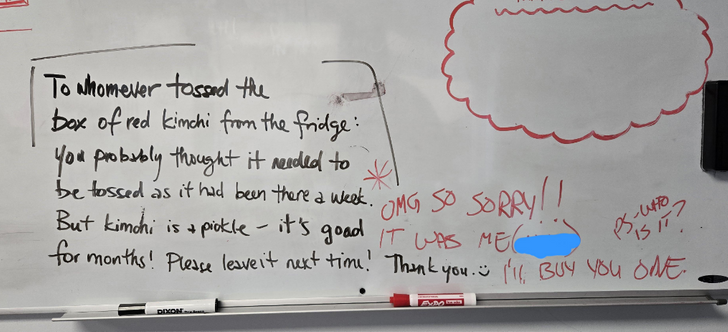 To whomever tossed the
box of red kimchi from the fridge:
You probably thought it needed to
be tossed as it had been there a week.
But kimchi is a pickle – it's good
for months! Please leave it next time! Thank you. :)
OMG SO SORRY!!
IT WAS ME (
)
I'll BUY YOU ONE.
PS-WHO
IS IT?
DIXON
EXPO